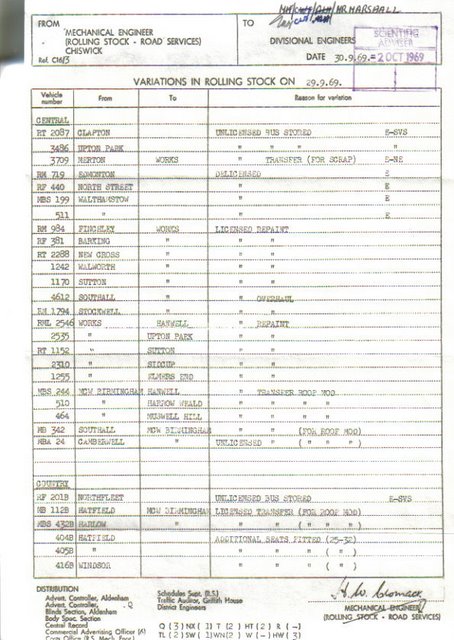 MR MARSHALL
FROM
MECHANICAL ENGINEER
(ROLLING STOCK - ROAD SERVICES)
CHISWICK
Ref. C16/3
TO
DIVISIONAL ENGINEERS
DATE 30.9.69.
SCIENTIFIC
ADVISER
2 OCT 1969
VARIATIONS IN ROLLING STOCK ON 29.9.69.
Vehicle number From To Reason for variation
CENTRAL
RT 2087 CLAPTON UNLICENSED BUS STORED E-SVS
3486 UPTON PARK " " " "
3709 MERTON WORKS " TRANSFER (FOR SCRAP) E-NE
RM 719 EDMONTON DELICENSED E
RF 440 NORTH STREET " E
MBS 199 WALTHAMSTOW " E
511 " " E
RM 984 FINCHLEY WORKS LICENSED REPAINT
RF 381 BARKING " " "
RT 2288 NEW CROSS " " "
1242 WALWORTH " " "
1170 SUTTON " " "
4612 SOUTHALL " " OVERHAUL
RM 1794 STOCKWELL " " "
RML 2546 WORKS HANWELL " REPAINT
2535 " UPTON PARK " "
RT 1152 " SUTTON " "
2310 " SIDCUP " "
1255 " ELMERS END " "
MBS 244 MCW BIRMINGHAM HANWELL " TRANSFER ROOF MOD
510 " HARROW WEALD " " " "
464 " MUSWELL HILL " " " "
MB 342 SOUTHALL MCW BIRMINGHAM " " (FOR ROOF MOD)
MBA 24 CAMBERWELL " UNLICENSED " ( " " " )
COUNTRY
RF 201B NORTHFLEET UNLICENSED BUS STORED E-SVS
MB 112B HATFIELD MCW BIRMINGHAM LICENSED TRANSFER (FOR ROOF MOD)
MBS 432B HARLOW " " " ( " " " )
404B HATFIELD ADDITIONAL SEATS FITTED (25-32)
405B " " " " ( " )
416B WINDSOR " " " ( " )
DISTRIBUTION
Advert. Controller, Aldenham
Advert. Controller,
Blinds Section, Aldenham
Body Spec. Section
Central Record
Commercial Advertising Officer (6)
Schedules Supt. (R.S.)
Traffic Auditor, Griffith House
District Engineers
Q (3) NX (1) T (2) HT (2) R (-)
TL (2) SW (1) WN (2) W (-) HW (3)
MECHANICAL ENGINEER
(ROLLING STOCK - ROAD SERVICES)